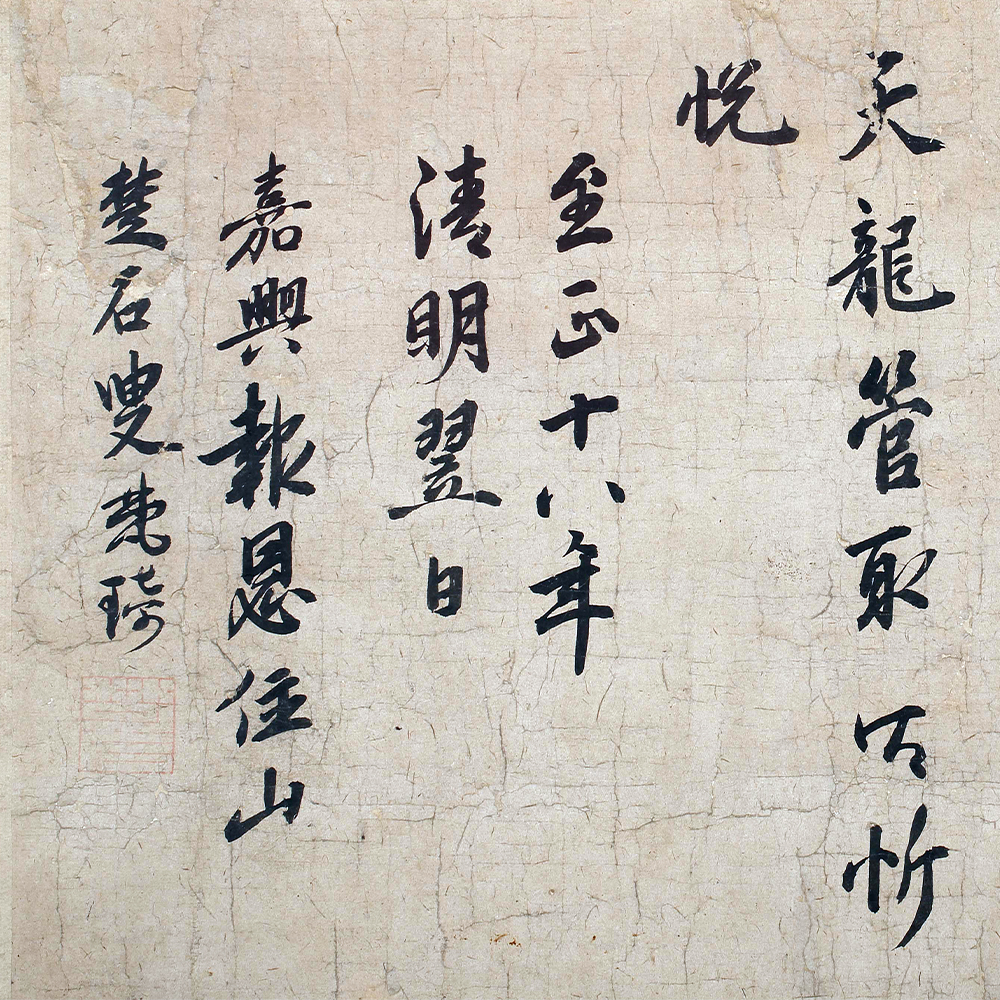 天龍管取忻
悦
至正十八年
清明翌日
嘉興報恩住山
楚石叟梵琦